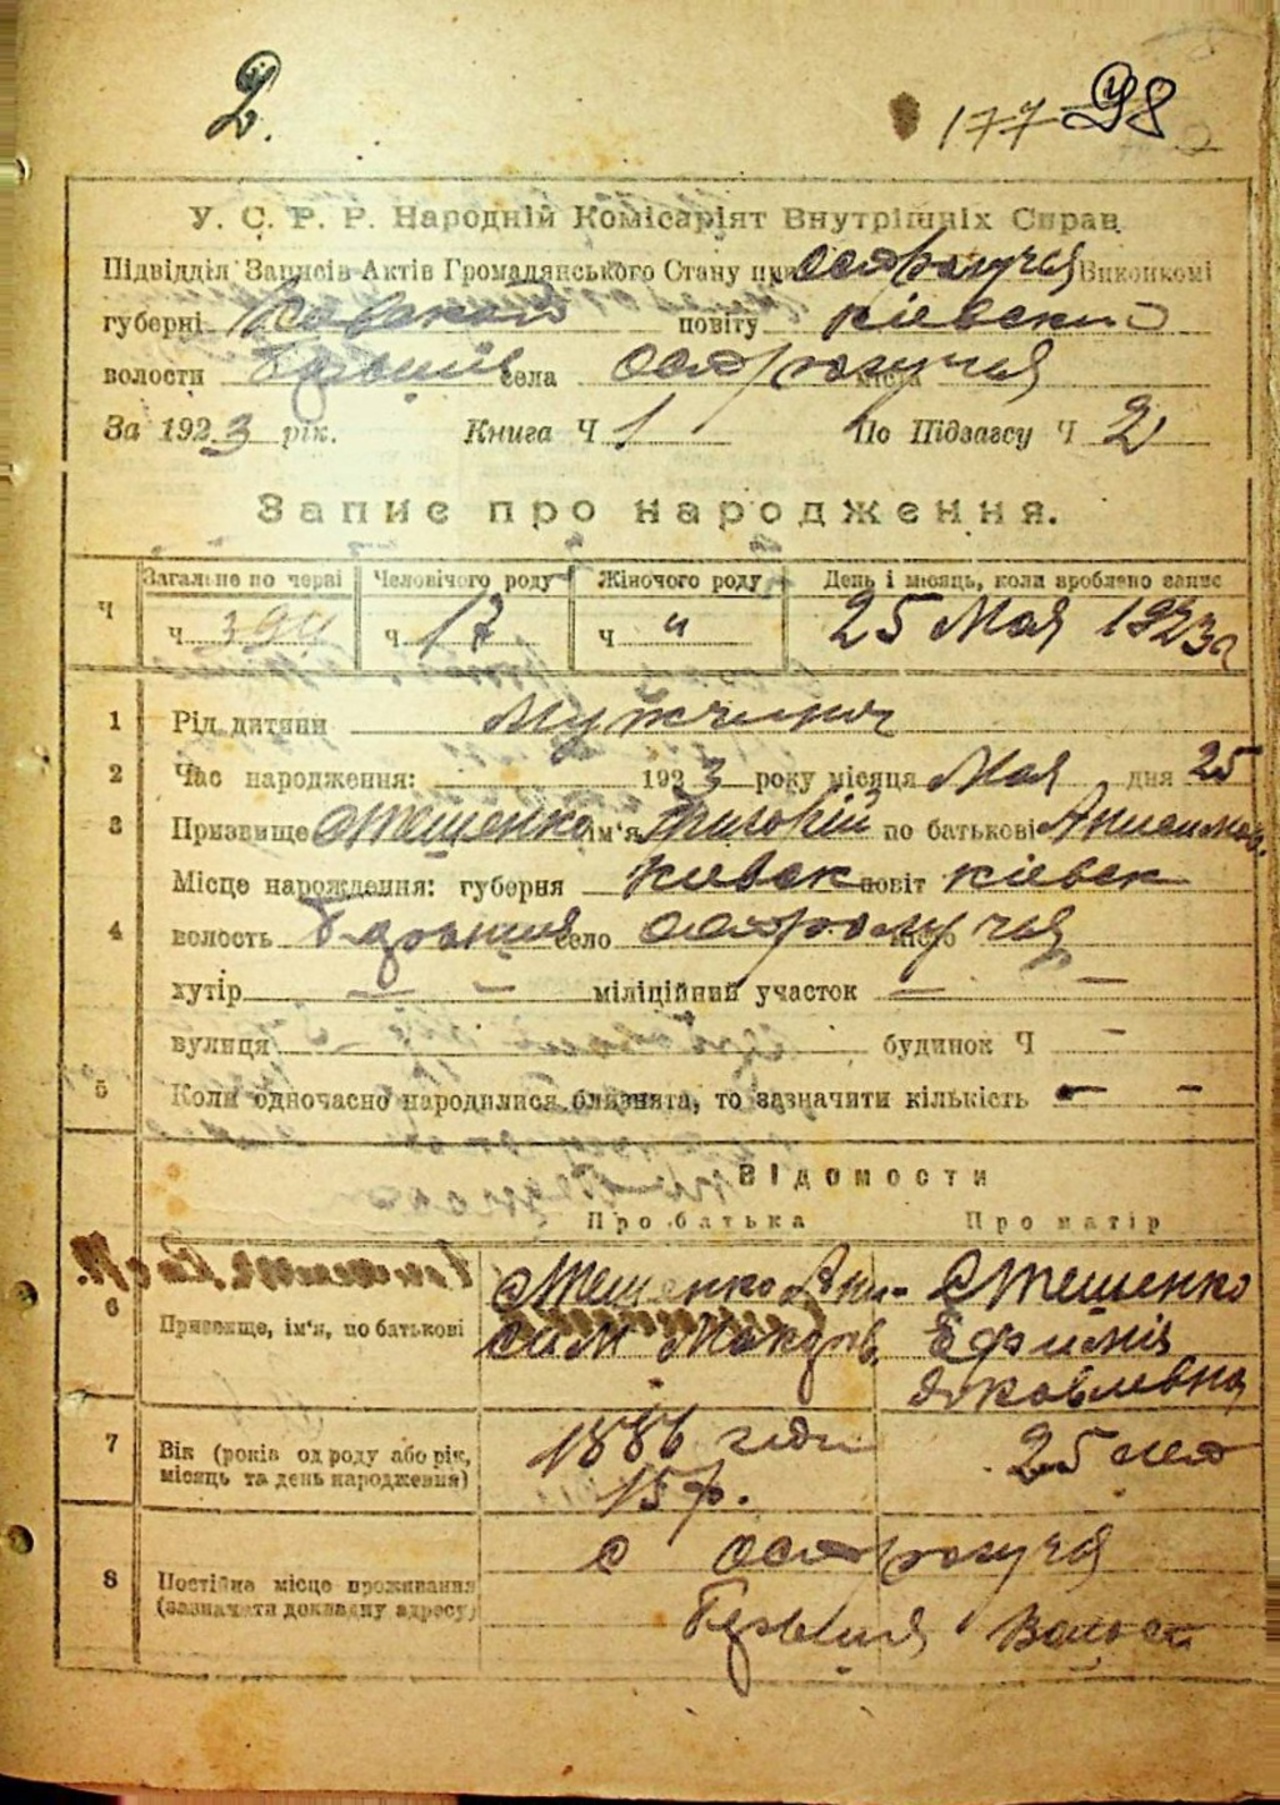 2.
177 98
У. С. Р. Р. Народній Комісаріят Внутрішніх Справ
Підвідділ Записів Актів Громадянського Стану при Виконкомі
губерні повіту Кіевский
волости села міста
За 1923 рік. Книга Ч 1 По Підзагсу Ч 2
Запис про народження.
Загальне по черзі Человічого роду Жіночого роду День і місяць, коли зроблено запис
Ч ч ч 17 ч " 25 Мая 1923г
1 Рід дитини Мужчина
2 Час народження: 1923 року місяця Мая дня 25
3 Призвище Стешенко ім'я Григорій по батькові Анисимов.
Місце народження: губерня Киевск повіт Кіевск
4 волость село місто
хутір — — міліційний участок — —
вулиця будинок Ч —
5 Коли одночасно народилися близнята, то зазначити кількість — —
Відомости
Про батька Про матір
6 Призвище, ім'я, по батькові Стешенко Ани- Стешенко
сим Ефимія
Яковлевна
7 Вік (років од роду або рік, 1886 года 25 лет
місяць та день народження) 15
8 Постійне місце проживання с
(зазначити докладну адресу) Волост